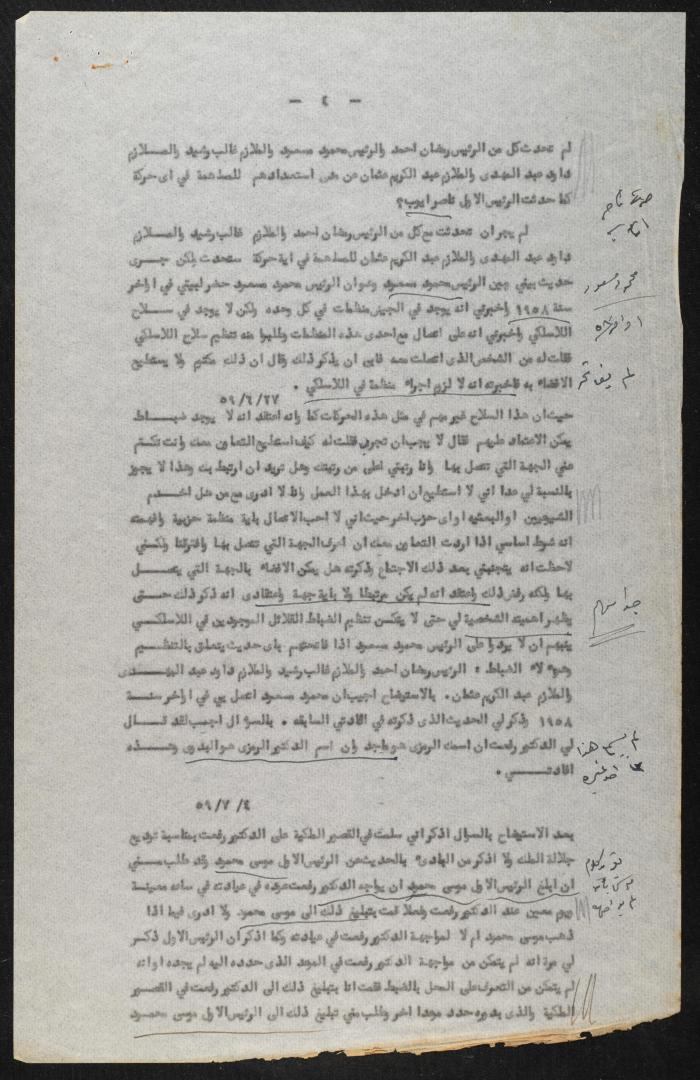 — ٤ —
لم تحدث كل من الرئيس رمضان احمد والرئيس محمود مسعود والملازم غالب رشيد والمــلازم
داود عبد المهدى والملازم عبد الكريم عثمان عن مدى استعدادهم للمساهمة في اى حركة
كما حدثت الرئيس الاول ناصر ايوب؟
لم يجر ان تحدثت مع كل من الرئيس رمضان احمد والملازم غالب رشيد والمــلازم
داود عبد المهدى والملازم عبد الكريم عثمان للمساهمة في اية حركة ستحدث ولكن جــرى
حديث بيني وبين الرئيس محمود مسعود وهو ان الرئيس محمود مسعود حضر لبيتي في اواخر
سنة ١٩٥٨ واخبرني انه يوجد في الجيش منظمات في كل وحده ولكن لا يوجد في ســلاح
اللاسلكي واخبرني انه على اتصال مع احدى هذه المنظمات وطلبوا منه تنظيم سلاح اللاسلكي
فقلت له من الشخص الذى اتصلت معه فابى ان يذكر ذلك وقال ان ذلك مكتوم ولا يستطيع
الافضاء به فاخبرته انه لا لزوم اجراء منظمة في اللاسلكي .
٥٩/٦/٢٧
حيث ان هذا السلاح غير مهم في مثل هذه الحركات كما وانه اعتقد انه لا يوجد ضبــاط
يمكن الاعتماد عليهم فقال لا يجب ان تجرى فقلت له كيف استطيع التعاون معك وانت تكتم
عني الجهة التي تتصل بها وانا رتبتي اعلى من رتبتك وهل تريد ان ارتبط بك وهذا لا يجوز
بالنسبة لي عدا اني لا استطيع ان ادخل بهذا العمل وانا لا ادرى مع من هل اخــدم
الشيوعيين او البعثيه او اى حزب اخر حيث اني لا احب الاتصال باية منظمة حزبية وافهمته
انه شرط اساسي اذا اردت التعاون معك ان اعرف الجهة التي تتصل بها وافترقنا ولكني
لاحظت انه يتجنبني بعد ذلك الاجتماع وذكرته هل يمكن الافضاء بالجهة التي يتصــل
بها ولكنه رفض ذلك واعتقد انه لم يكن مرتبطا ولا باية جهة واعتقادى انه ذكر ذلك حتــى
يظهر اهميته الشخصية لي حتى لا يتمكن تنظيم الضباط القلائل الموجودين في اللاسلكــي
نبهم ان لا يردوا على الرئيس محمود مسعود اذا فاتحهم باى حديث يتعلق بالتنظيــم
وهوءلاء الضباط : الرئيس رمضان احمد والملازم غالب رشيد والملازم داود عبد المهــدى
والملازم عبد الكريم عثمان . بالاستيضاح اجيب ان محمود مسعود اتصل بي في اواخر سنــة
١٩٥٨ وذكر لي الحديث الذى ذكرته في افادتي السابقه . بالسوءال اجيب لقد قــال
لي الدكتور رفعت ان اسمك الرمزى هو واجد وان اسم الدكتور الرمزى هو البدوى وهــذه
افادتـــي .
٥٩/٧/٤
بعد الاستيضاح بالسوال اذكر اني سلمت في القصور الملكية على الدكتور رفعت بمناسبة توديع
جلالة الملك ولا اذكر من البادىء بالحديث عن الرئيس الاول موسى محمود وقد طلب مــني
ان ابلغ الرئيس الاول موسى محمود ان يواجه الدكتور رفعت عوده في عيادته في ساعه معينــة
ويوم معين عند الدكتور رفعت وفعلا قمت بتبليغ ذلك الى موسى محمود ولا ادرى فيما اذا
ذهب موسى محمود ام لا لمواجهة الدكتور رفعت في عيادته وكما اذكر ان الرئيس الاول ذكــر
لي مرة انه لم يتمكن من مواجهة الدكتور رفعت في الموعد الذى حدده اليه لم يجده او انه
لم يتمكن من التعرف على المحل بالضبط فقمت انا بتبليغ ذلك الى الدكتور رفعت في القصــور
الملكية والذى بدوره حدد موعدا اخر وطلب مني تبليغ ذلك الى الرئيس الاول موسى محمــود
محمود مسعود
اواخر ٥٨
جواسيس
لم يسم هذا